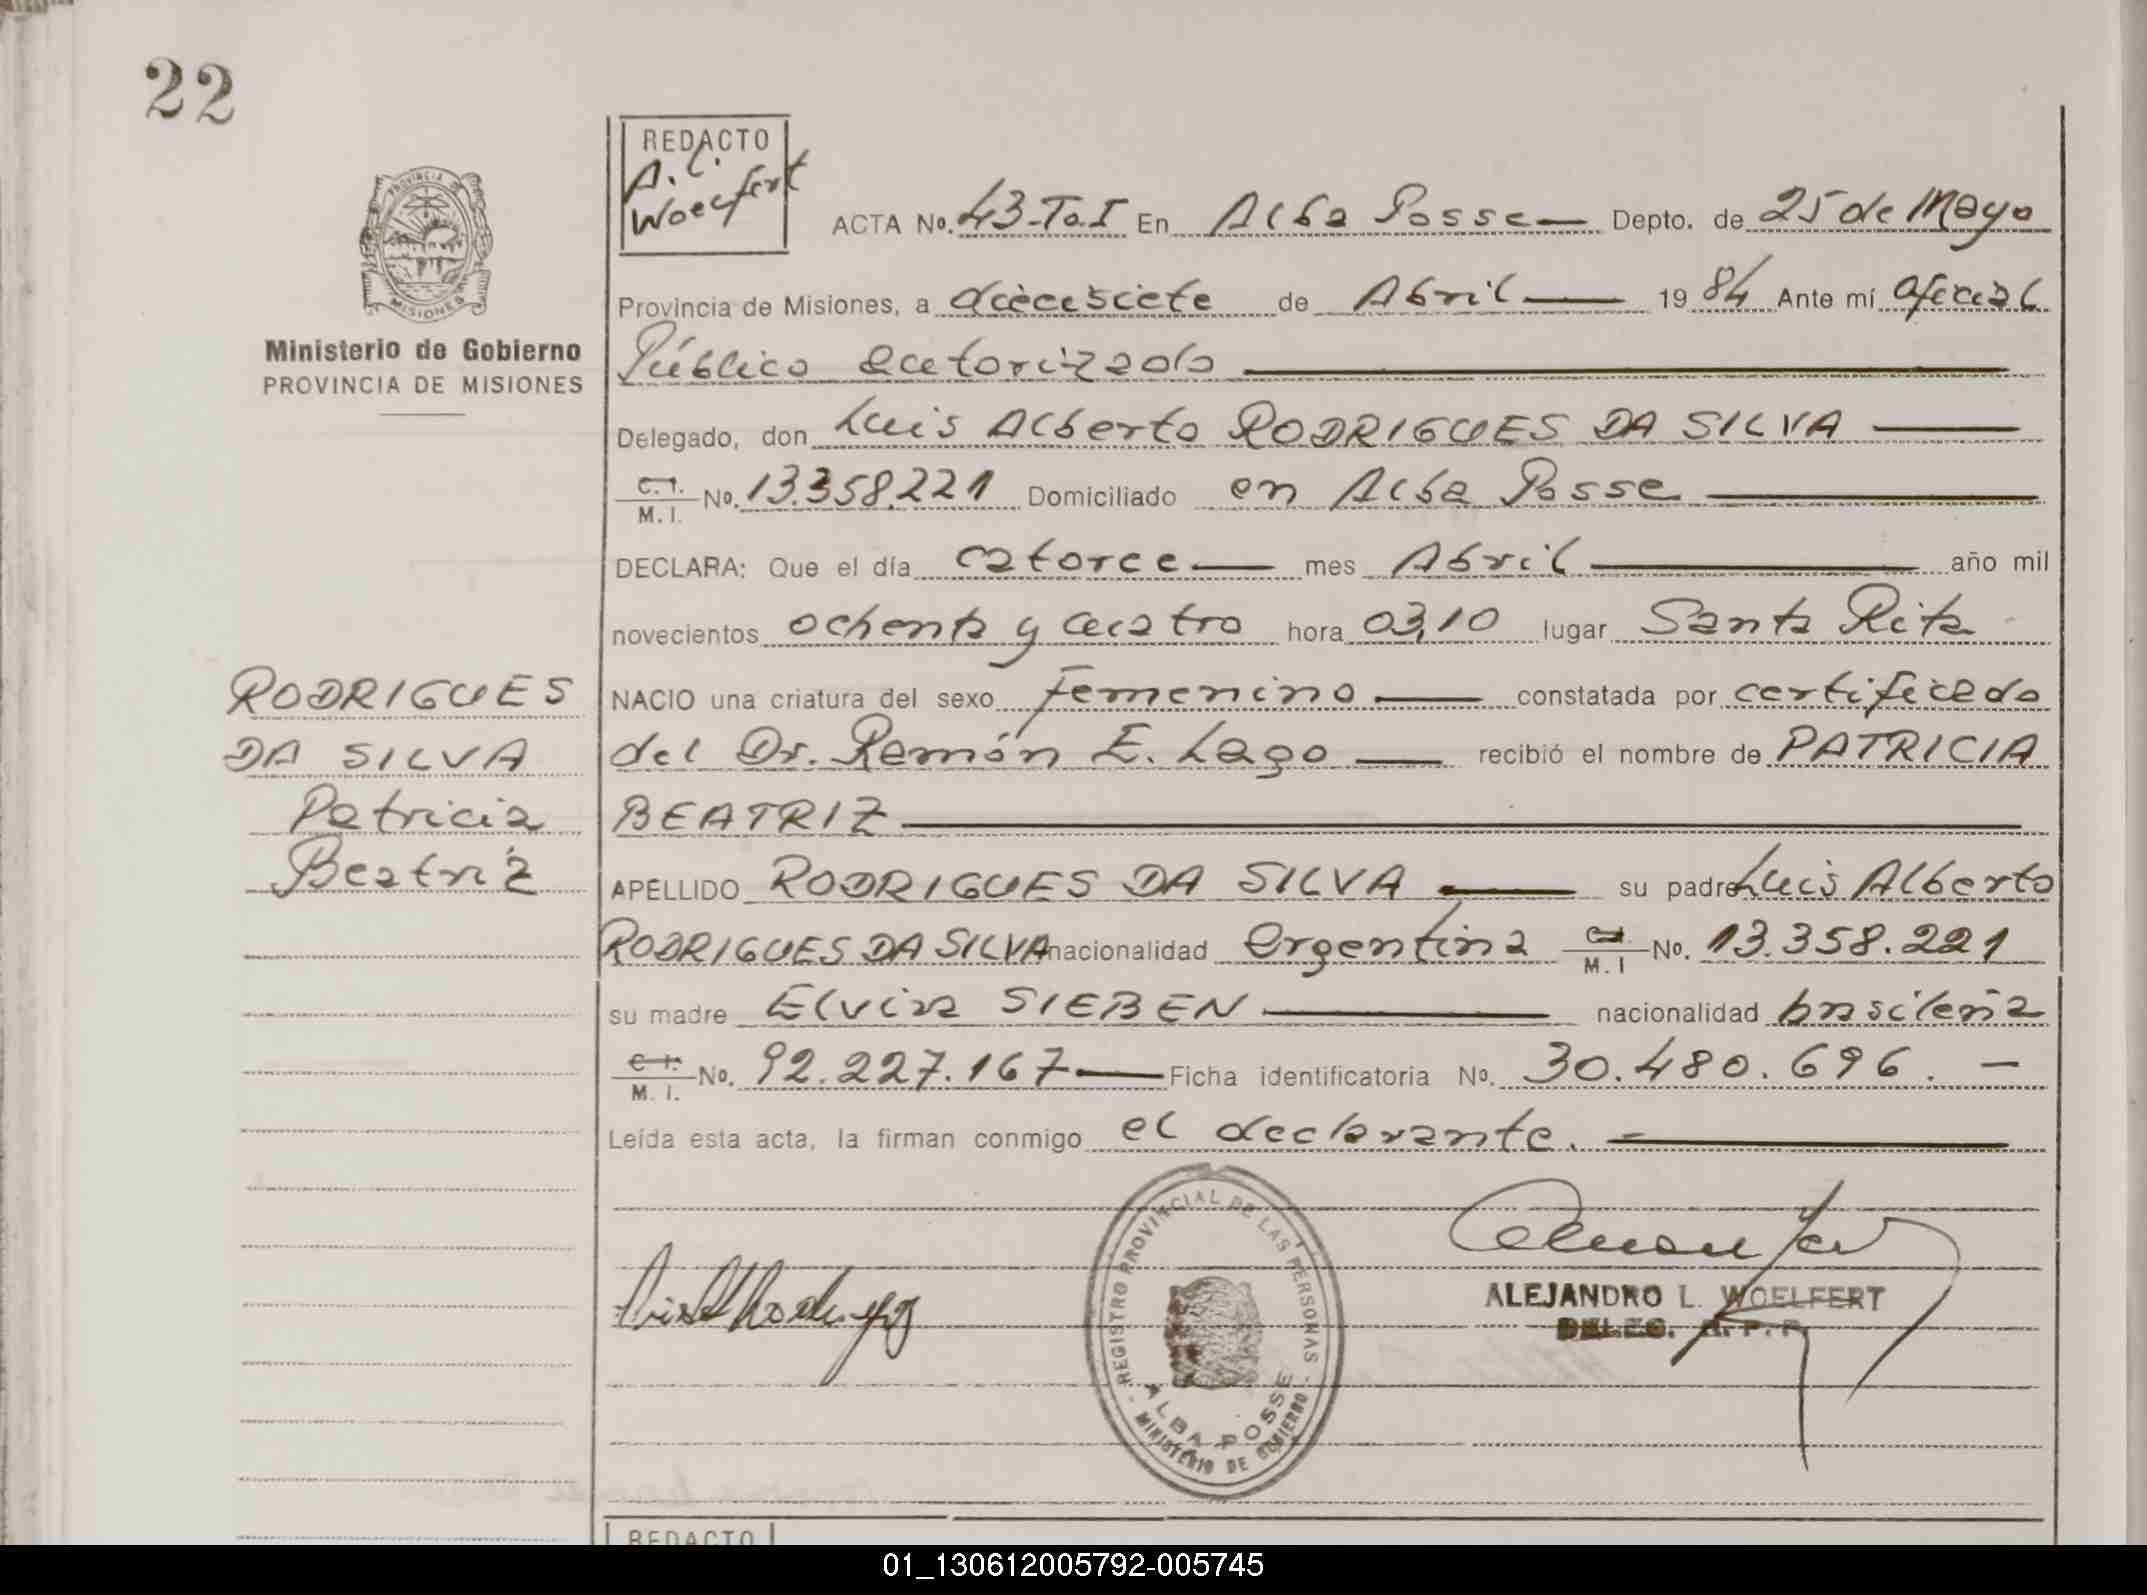 22
REDACTO
A. L.
Woelfert
PROVINCIA DE
MISIONES
Ministerio de Gobierno
PROVINCIA DE MISIONES
ACTA No. 43-To.I En Alba Posse Depto. de 25 de Mayo
Provincia de Misiones, a diecisiete de Abril 19 84 Ante mí oficial
Público autorizado
Delegado, don Luis Alberto RODRIGUES DA SILVA
C. I.
M. I. No. 13.358.221 Domiciliado en Alba Posse
DECLARA: Que el día catorce mes Abril año mil
novecientos ochenta y cuatro hora 03,10 lugar Santa Rita
NACIO una criatura del sexo femenino constatada por certificado
del Dr. Ramón E. Lago recibió el nombre de PATRICIA
BEATRIZ
APELLIDO RODRIGUES DA SILVA su padre Luis Alberto
RODRIGUES DA SILVA nacionalidad argentina C. I. M. I No. 13.358.221
su madre Elvira SIEBEN nacionalidad brasileña
C. I.
M. I. No. 92.227.167 Ficha identificatoria No. 30.480.696. -
Leída esta acta, la firman conmigo el declarante. -
RODRIGUES
DA SILVA
Patricia
Beatriz
REGISTRO PROVINCIAL DE LAS PERSONAS
ALBA POSSE
- MINISTERIO DE GOBIERNO -
ALEJANDRO L. WOELFERT
DELEG. R. P. P.
REDACTO
01_130612005792-005745